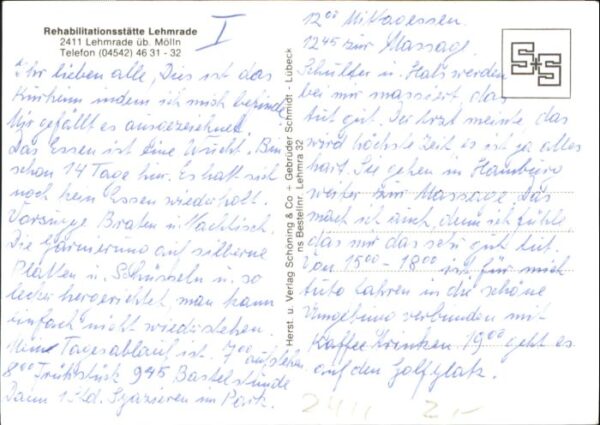 Rehabilitationsstätte Lehmrade
2411 Lehmrade üb. Mölln
Telefon (04542) 46 31 - 32
I
Ihr lieben alle, Dies ist das
Kurheim indem ich mich befinde
Mir gefällt es ausgezeichnet.
Das Essen ist eine Wucht. Bin
schon 14 Tage hier. Es hat sich
noch kein Essen wiederholt.
Vorsuppe Braten u. Nachtisch
Die Garnierung auf silberne
Platten u. Schüsseln u. so
lecker hergerichtet, man kann
einfach nicht wiederstehen.
Mein Tagesablauf ist. 7 00 aufstehen
8 00 Frühstück 9 45 Bastelstunde
Dann 1 Std. Spazieren im Park.
Herst. u. Verlag Schöning & Co + Gebrüder Schmidt - Lübeck
ns Bestellnr. Lehmra 32
12 00 Mittagessen.
12 45 zur Massage.
Schulter u. Hals werden
bei mir massiert, das
tut gut. Der Arzt meinte, das
wird höchste Zeit es ist ja alles
hart. Sie gehen in Hamburg
weiter zur Massage. Das
mach ich auch, denn ich fühle
das mir das sehr gut tut.
Von 15 00 - 18 00 ist für mich
Auto fahren in die schöne
Umgebung verbunden mit
Kaffee trinken 19 00 geht es
auf den Golfplatz.
S+S
2411 2,-